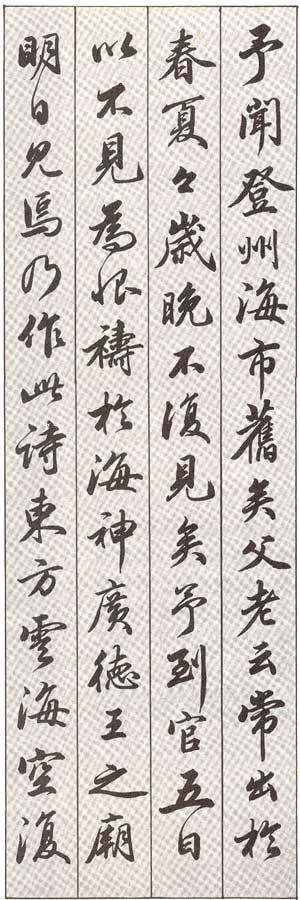 予聞登州海市舊矣父老云常出於
春夏今歲晚不復見矣予到官五日
以不見為恨禱於海神廣德王之廟
明日見焉乃作此詩東方雲海空復